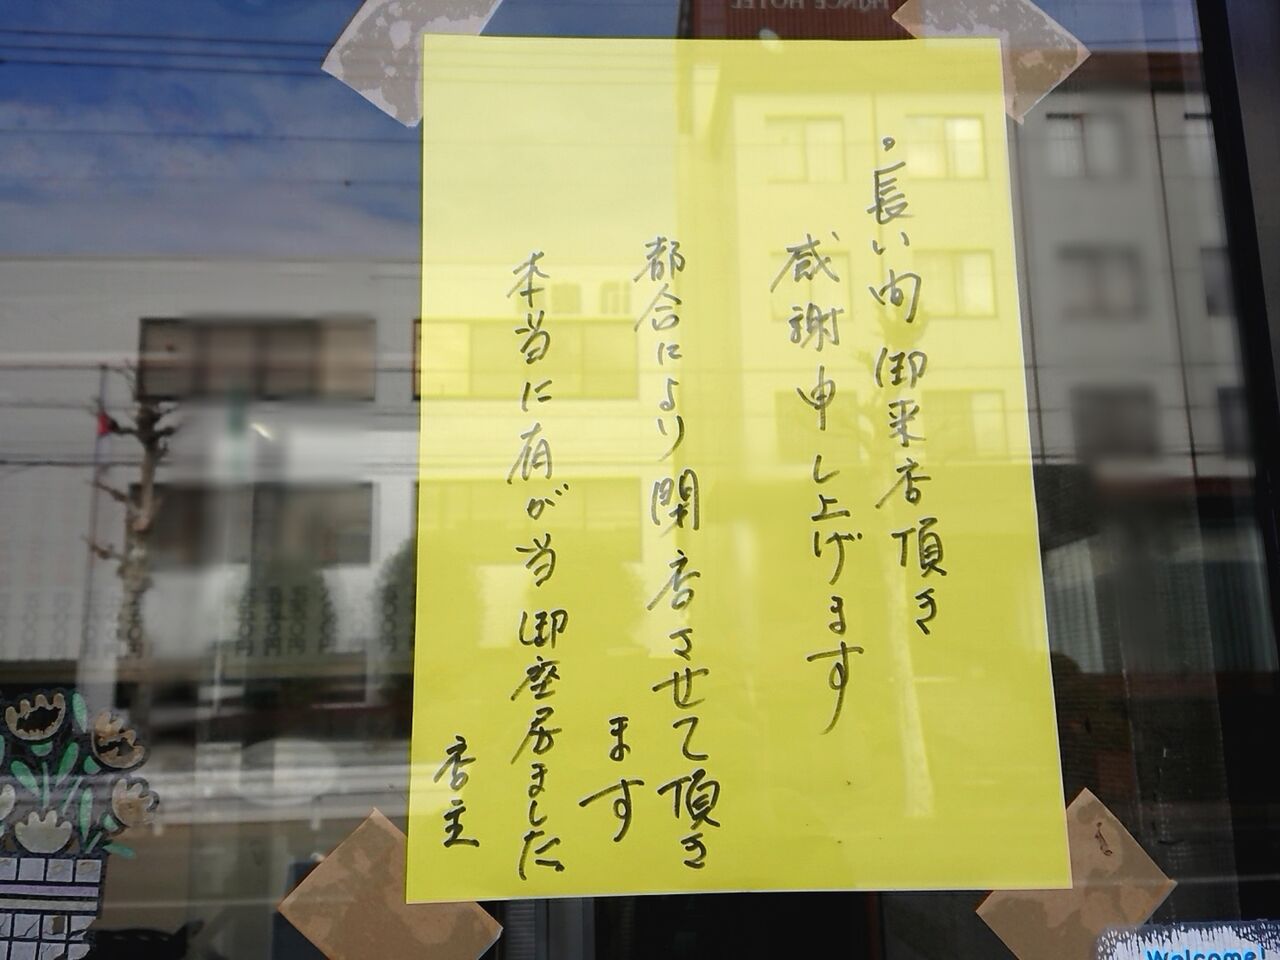 。長い間御来店頂き
感謝申し上げます
都合により閉店させて頂き
ます
本当に有が当御座居ました
店主
Welcome!
PRINCE HOTEL